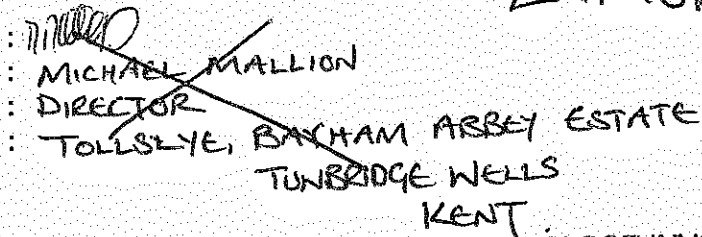 :
: MICHAEL MALLION
: DIRECTOR
: TOLLSLYE, BAYHAM ABBEY ESTATE
TUNBRIDGE WELLS
KENT.